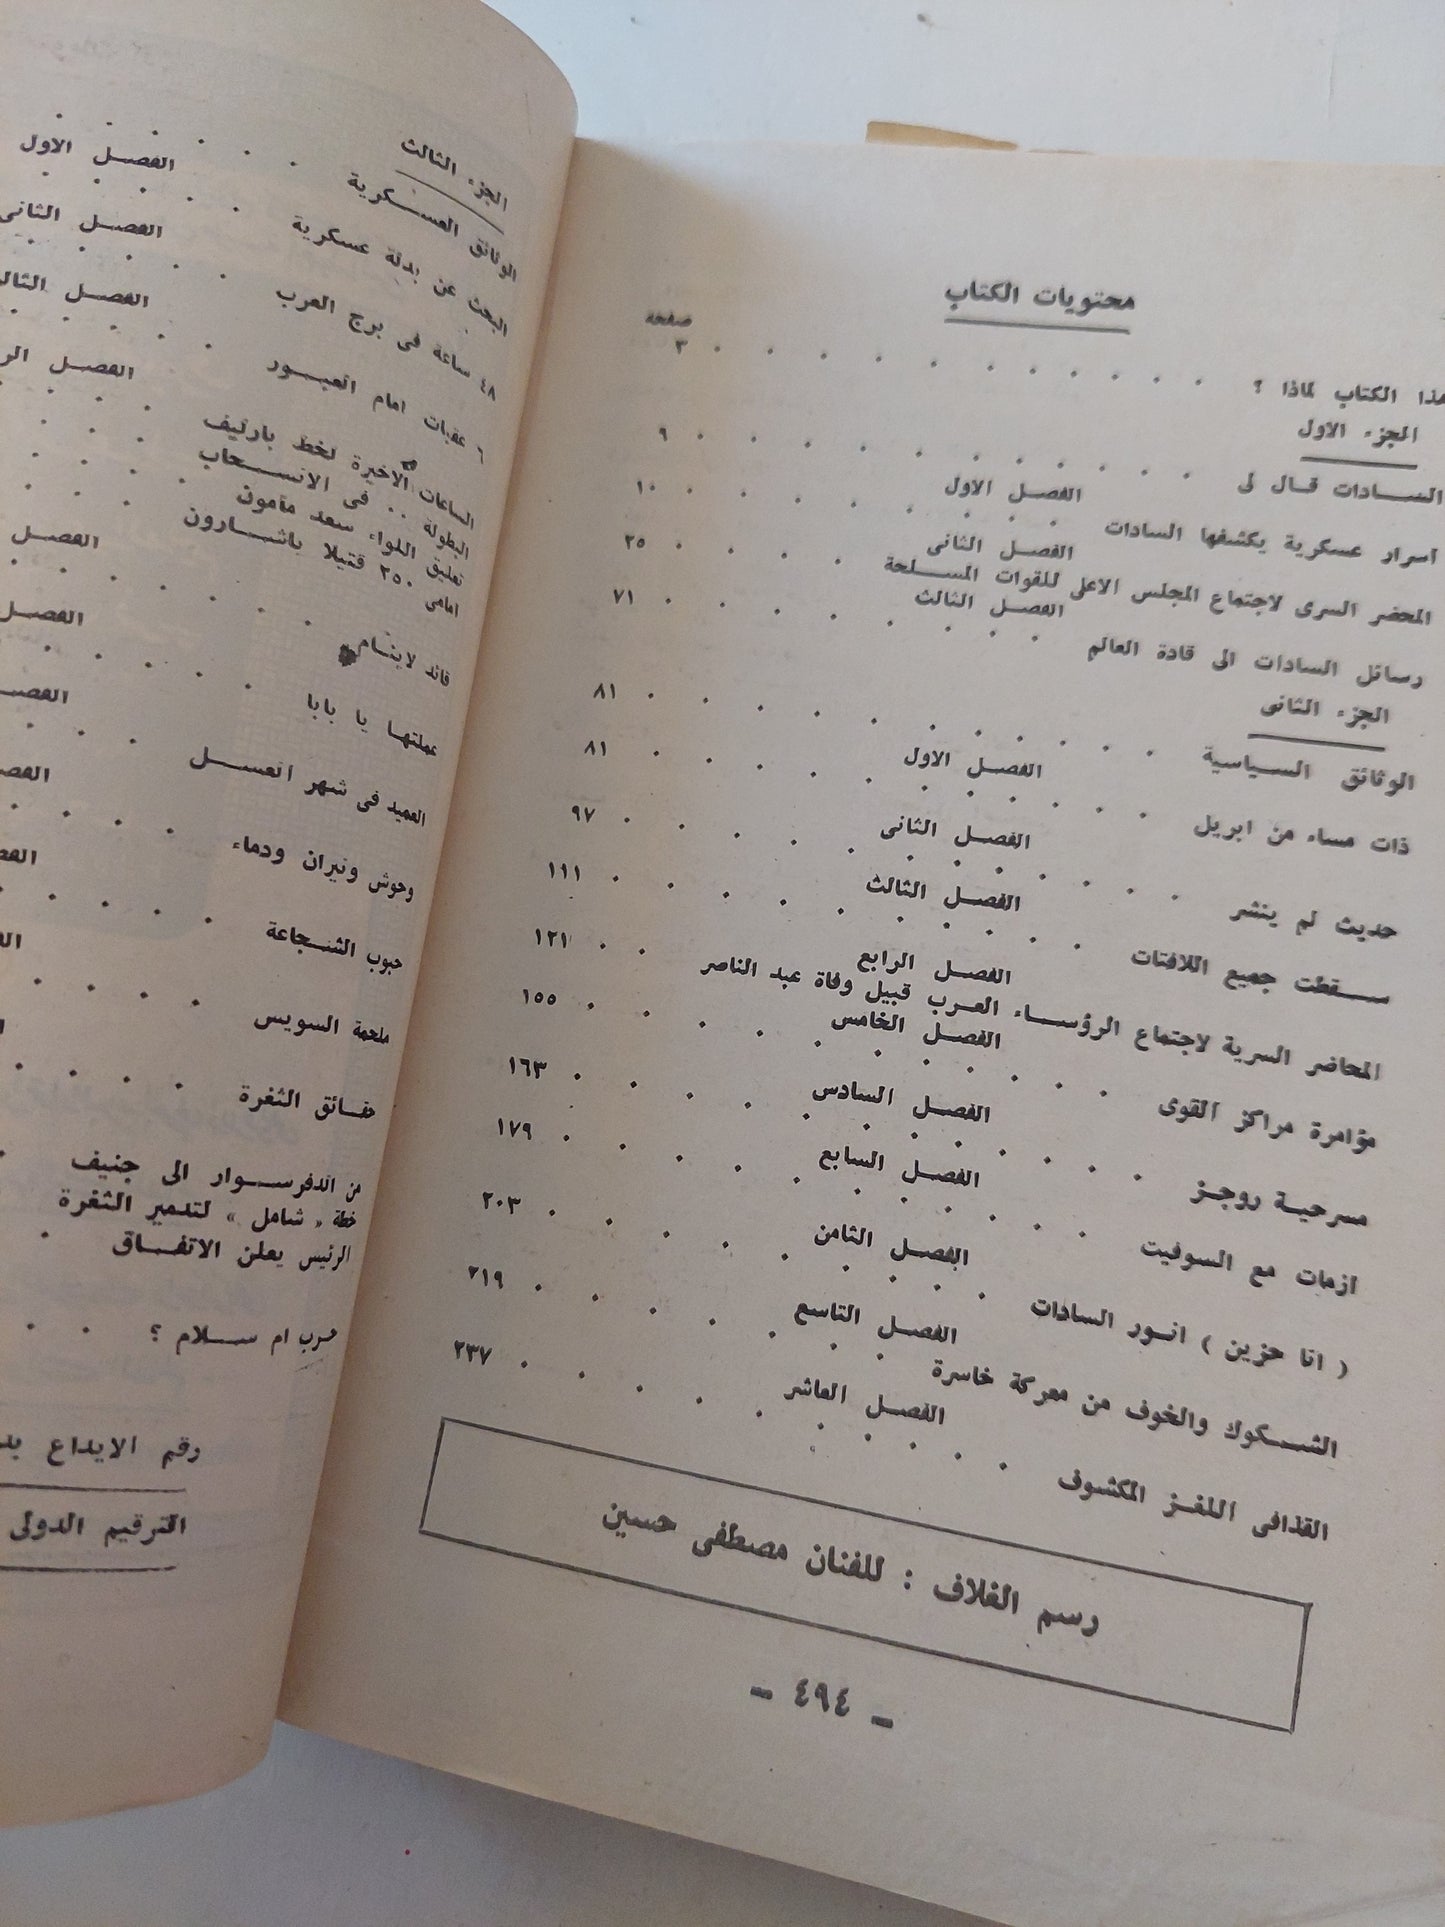 محتويات الكتاب
صفحة
هذا الكتاب لماذا ؟ ٣
الجزء الاول
السادات قال لى ٩
الفصل الاول
اسرار عسكرية يكشفها السادات ١٠
الفصل الثانى
المحضر السرى لاجتماع المجلس الاعلى للقوات المسلحة ٢٥
الفصل الثالث
رسائل السادات الى قادة العالم ٧١
الجزء الثانى
الوثائق السياسية ٨١
الفصل الاول
ذات مساء من ابريل ٨١
الفصل الثانى
حديث لم ينشر ٩٧
الفصل الثالث
سقطت جميع اللافتات ١١١
الفصل الرابع
المحاضر السرية لاجتماع الرؤساء العرب قبيل وفاة عبد الناصر ١٢١
الفصل الخامس
مؤامرة مراكز القوى ١٥٥
الفصل السادس
مسرحية روجز ١٦٣
الفصل السابع
ازمات مع السوفيت ١٧٩
الفصل الثامن
( انا حزين ) انور السادات ٢٠٣
الفصل التاسع
الشكوك والخوف من معركة خاسرة ٢١٩
الفصل العاشر
القذافى اللغز المكشوف ٢٣٧
رسم الغلاف : للفنان مصطفى حسين
- ٤٩٤ -
الجزء الثالث
الوثائق العسكرية
الفصل الاول
البحث عن بدلة عسكرية
الفصل الثانى
٤٨ ساعة فى برج العرب
الفصل
٦ عقبات امام العبور
الفصل
الساعات الاخيرة لخط بارليف
البطولة .. فى الانسحاب
تعليق اللواء سعد مأمون
امامى ٢٥٠ قتيلا ياشارون
الفصل
قائد لاينام
الفصل
عملتها يا بابا
العميد فى شهر العسل
وحوش ونيران ودماء
حبوب الشجاعة
ملحمة السويس
حقائق الثغرة
من الدفرسوار الى جنيف
خطة « شامل » لتدمير الثغرة
الرئيس يعلن الاتفاق
حرب ام سلام ؟
رقم الايداع
الترقيم الدولى